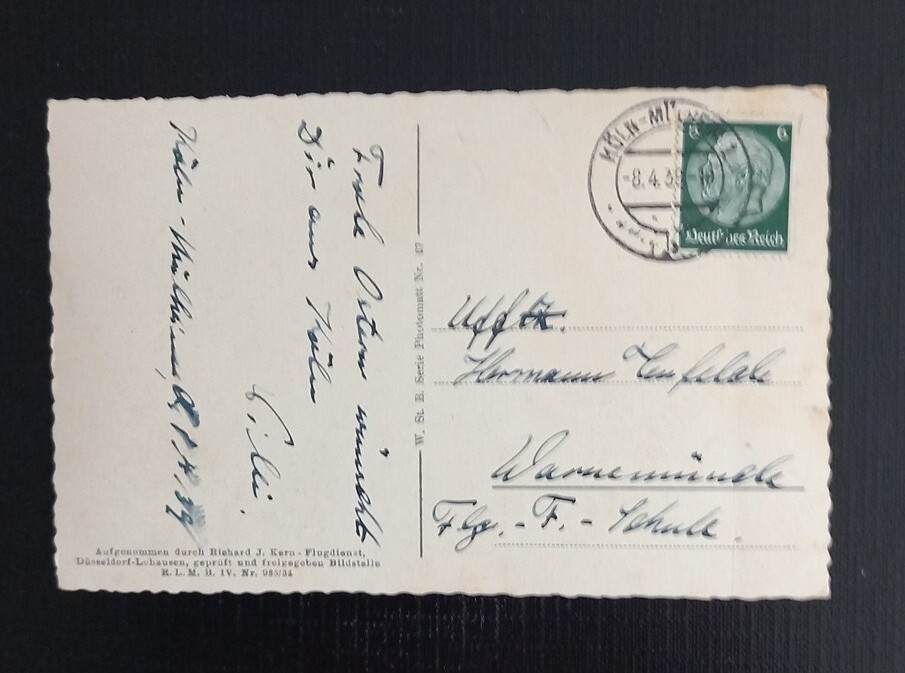 Köln-Mülheim, 8.4.39
Frohe Ostern wünscht
Dir aus Köln
Willi.
W. St. B. Serie Photomatt Nr. 47
Aufgenommen durch Richard J. Kern - Flugdienst,
Düsseldorf-Lohausen, geprüft und freigegeben Bildstelle
R. L. M. II. IV. Nr. 985/34
KÖLN-MÜ
-8.4.39
6 6
Deutsches Reich
Uffz.
Hermann
Warnemünde
Flg. - F. - Schule.